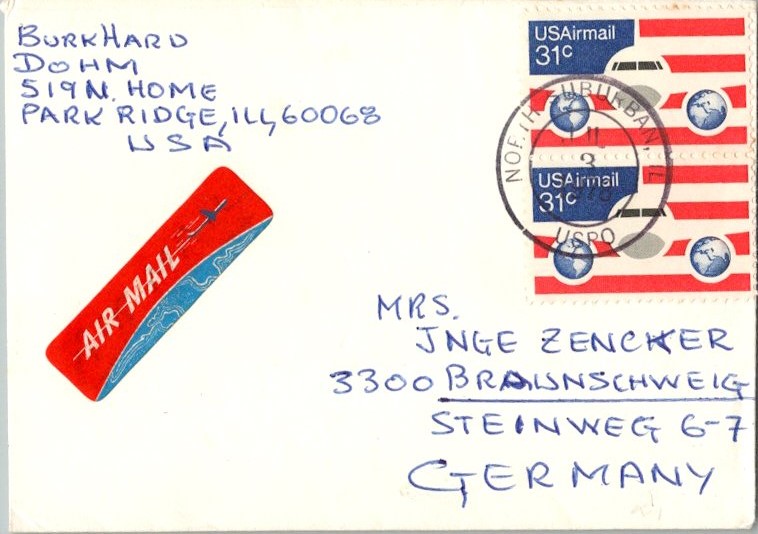 BURKHARD
DOHM
519 N. HOME
PARK RIDGE, ILL, 60068
USA
USAirmail
31c
NORTH SUBURBAN, IL
3
USPO
USAirmail
31c
AIR MAIL
MRS.
JNGE ZENCKER
3300 BRAUNSCHWEIG
STEINWEG 6-7
GERMANY